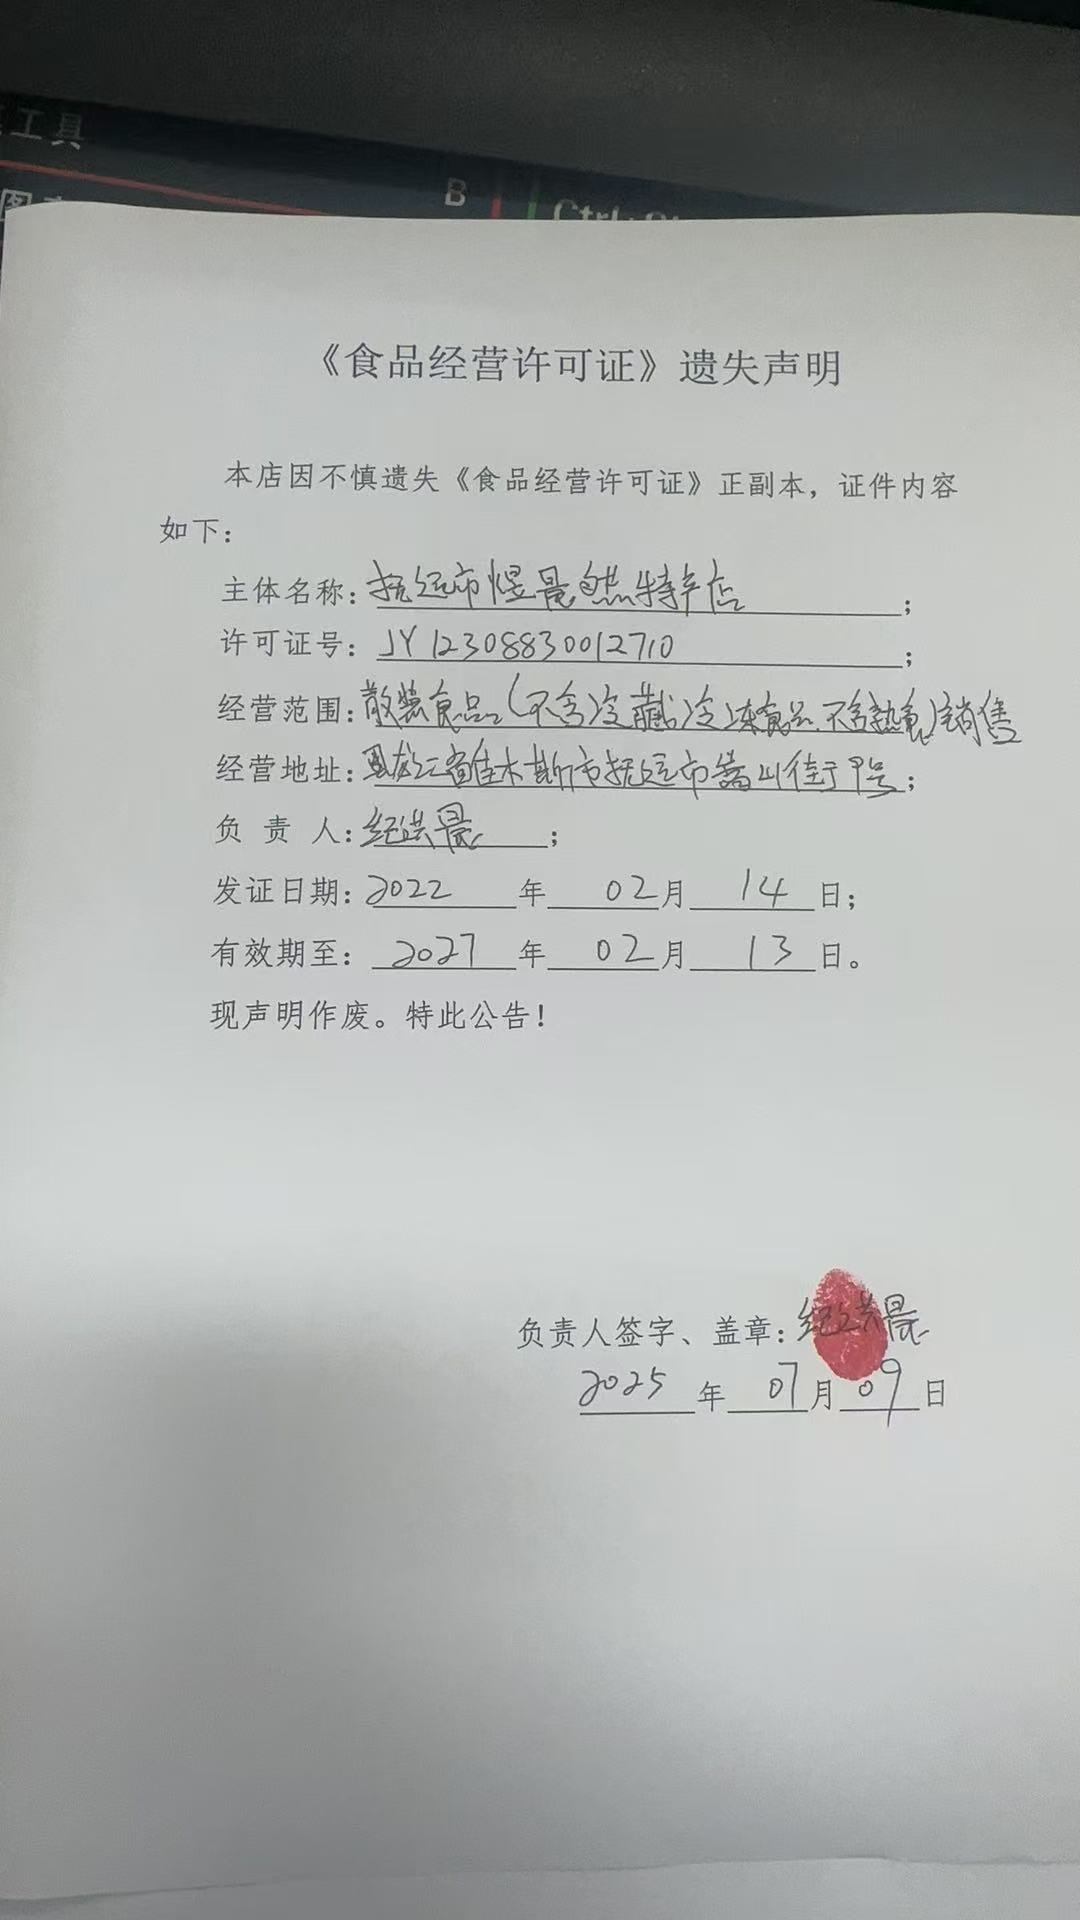 工具
B
《食品经营许可证》遗失声明
本店因不慎遗失《食品经营许可证》正副本，证件内容
如下：
主体名称：抚远市煜晨自然特产店；
许可证号：JY12308830012710；
经营范围：散装食品(不含冷藏冷冻食品、不含熟食)销售
经营地址：黑龙江省佳木斯市抚远市嵩山街于9号；
负 责 人：纪洪晨；
发证日期：2022年02月14日；
有效期至：2027年02月13日。
现声明作废。特此公告！
负责人签字、盖章：纪洪晨
2025年07月09日